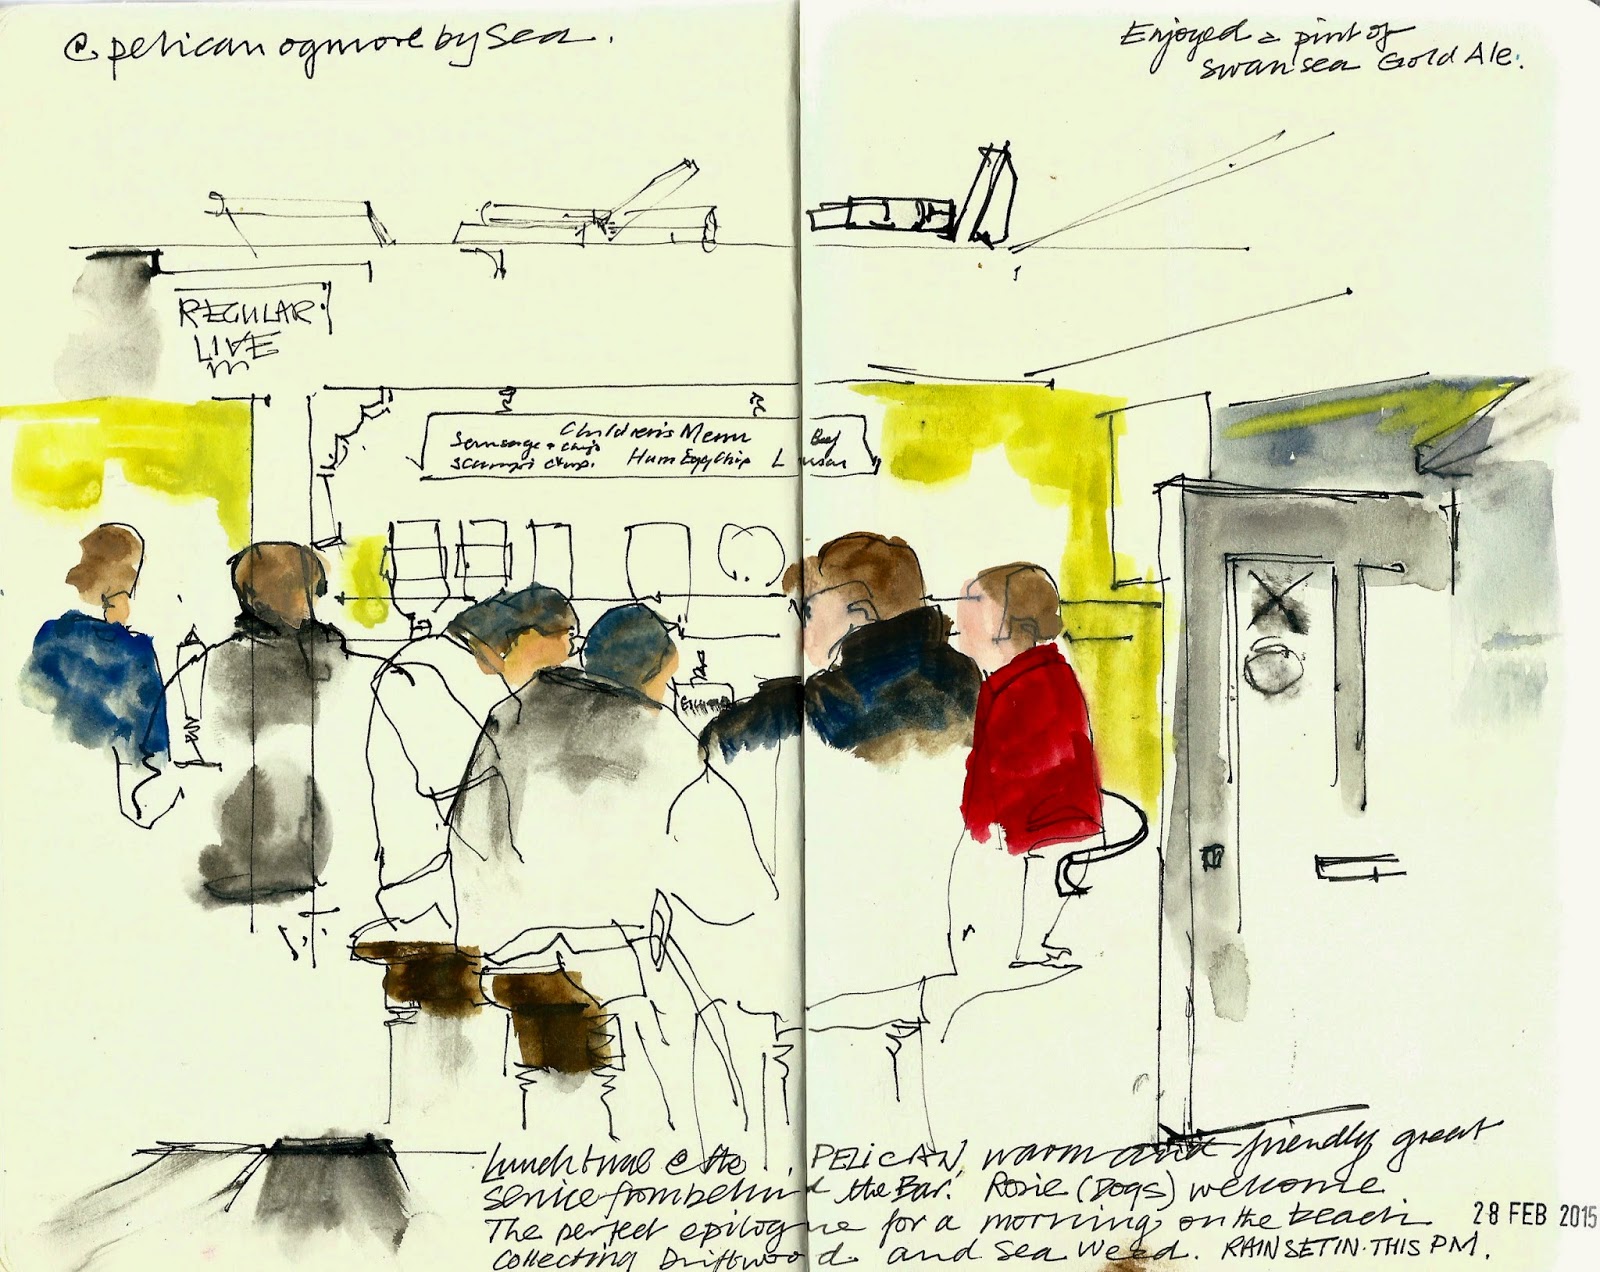 @pelican ogmore by Sea.
Enjoyed a pint of
Swansea Gold Ale.
REGULAR
LIVE
m
Children's Menu
Sausage + chips
Scampi chips. Ham Egg Chip
Beef
Lunchtime @ the PELICAN, warm and friendly great
service from behind the Bar. Rosie (Dogs) welcome.
The perfect epilogue for a morning on the beach
collecting Driftwood and Sea Weed. RAIN SET IN THIS PM.
28 FEB 2015